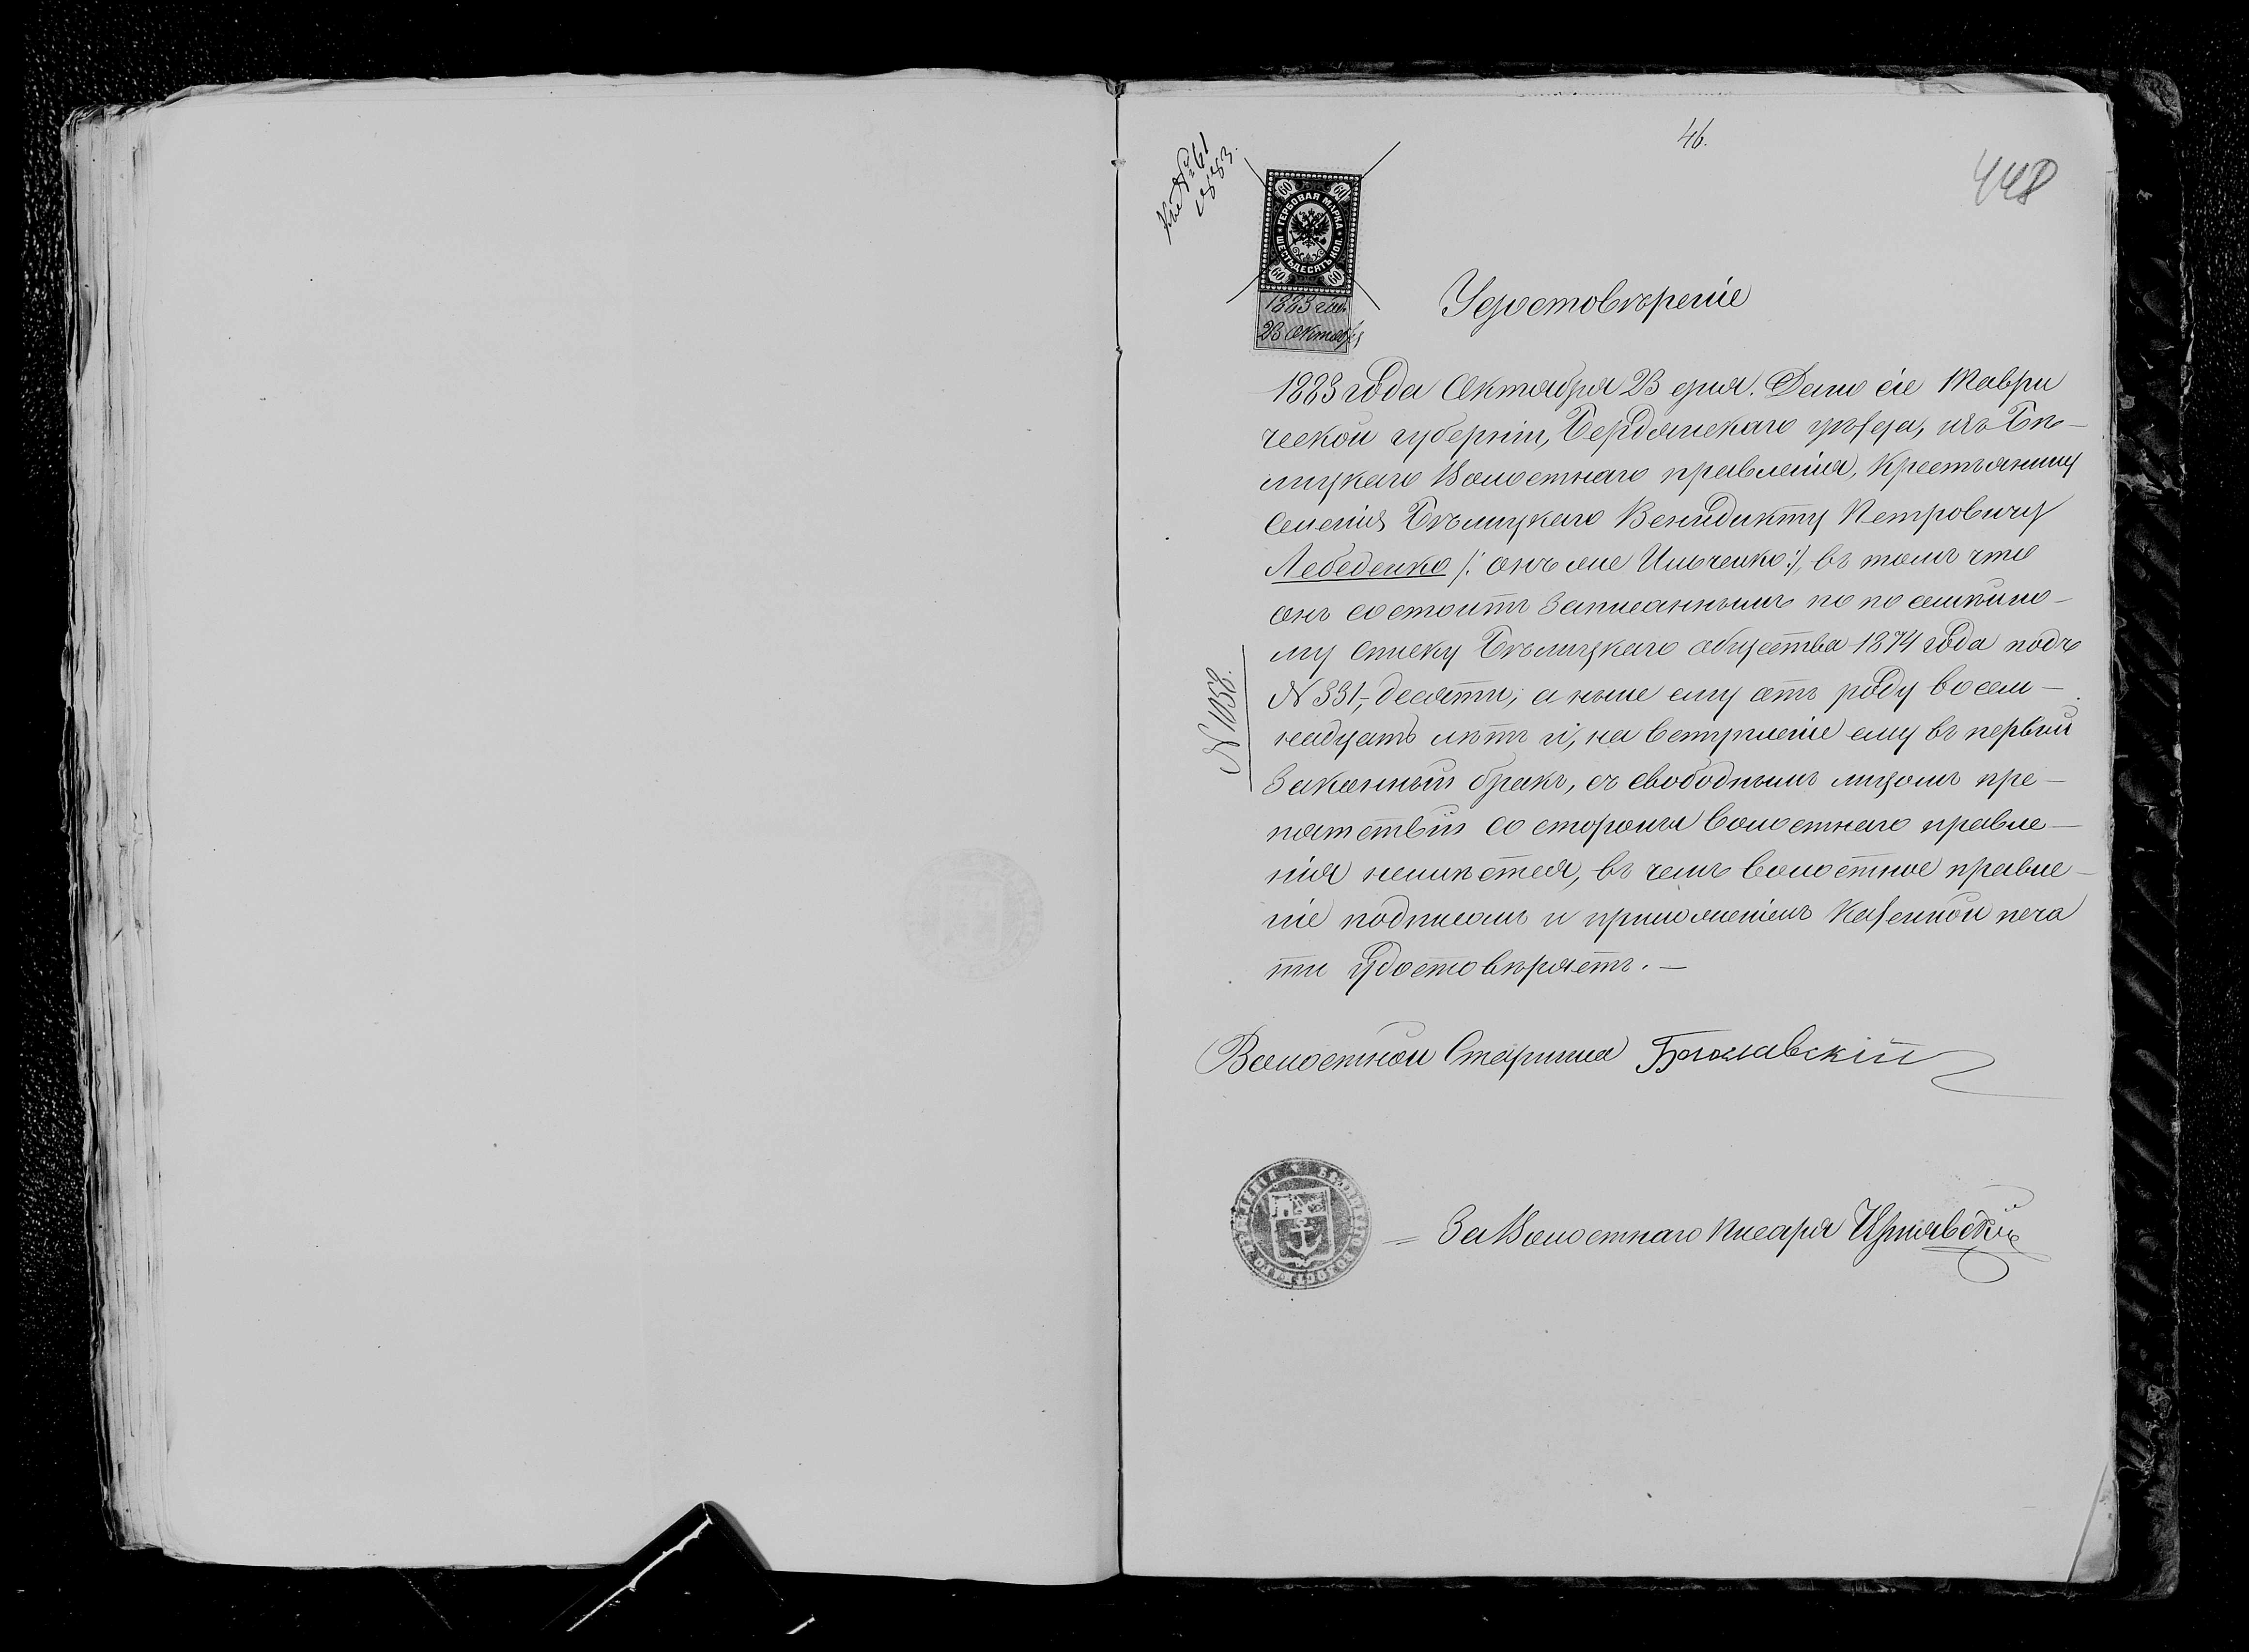 46.
448
Къ № 61
1883.
60 60
ГЕРБОВАЯ МАРКА
ШЕСТЬДЕСЯТЪ КОП.
60 60
1883 года
23 Октября
Удостовѣреніе
1883 года Октября 23 дня. Дано сіе Таври
ческой губерніи, Бердянскаго уѣзда, изъ Бѣ-
лицкаго Волостнаго правленія, крестьянину
селенія Бѣлицкаго Венидикту Петровичу
Лебеденко /: онъ же Ильченко :/, въ томъ что
онъ состоитъ записаннымъ по посемѣйно-
му списку Бѣлицкаго общества 1874 года подъ
№ 331, десяти, а ныне ему отъ роду восем-
надцать лѣтъ и, на вступленіе ему въ первый
законный бракъ, съ свободнымъ лицомъ пре-
пятствій со стороны волостнаго правле-
нія неимѣется, въ чемъ волостное правле-
ніе подписомъ и приложеніемъ казенной печа
ти удостовѣряетъ. —
№ 1058.
Волостной Старшина
За Волостнаго писаря